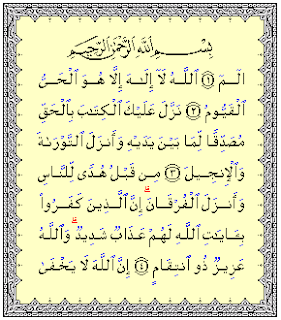 بِسْمِ اللَّهِ الرَّحْمَٰنِ الرَّحِيمِ
الٓمٓ ۝١ ٱللَّهُ لَآ إِلَٰهَ إِلَّا هُوَ ٱلْحَىُّ
ٱلْقَيُّومُ ۝٢ نَزَّلَ عَلَيْكَ ٱلْكِتَٰبَ بِٱلْحَقِّ
مُصَدِّقًا لِّمَا بَيْنَ يَدَيْهِ وَأَنزَلَ ٱلتَّوْرَىٰةَ
وَٱلْإِنجِيلَ ۝٣ مِن قَبْلُ هُدًى لِّلنَّاسِ
وَأَنزَلَ ٱلْفُرْقَانَ ۗ إِنَّ ٱلَّذِينَ كَفَرُوا۟
بِـَٔايَٰتِ ٱللَّهِ لَهُمْ عَذَابٌ شَدِيدٌ ۗ وَٱللَّهُ
عَزِيزٌ ذُو ٱنتِقَامٍ ۝٤ إِنَّ ٱللَّهَ لَا يَخْفَىٰ